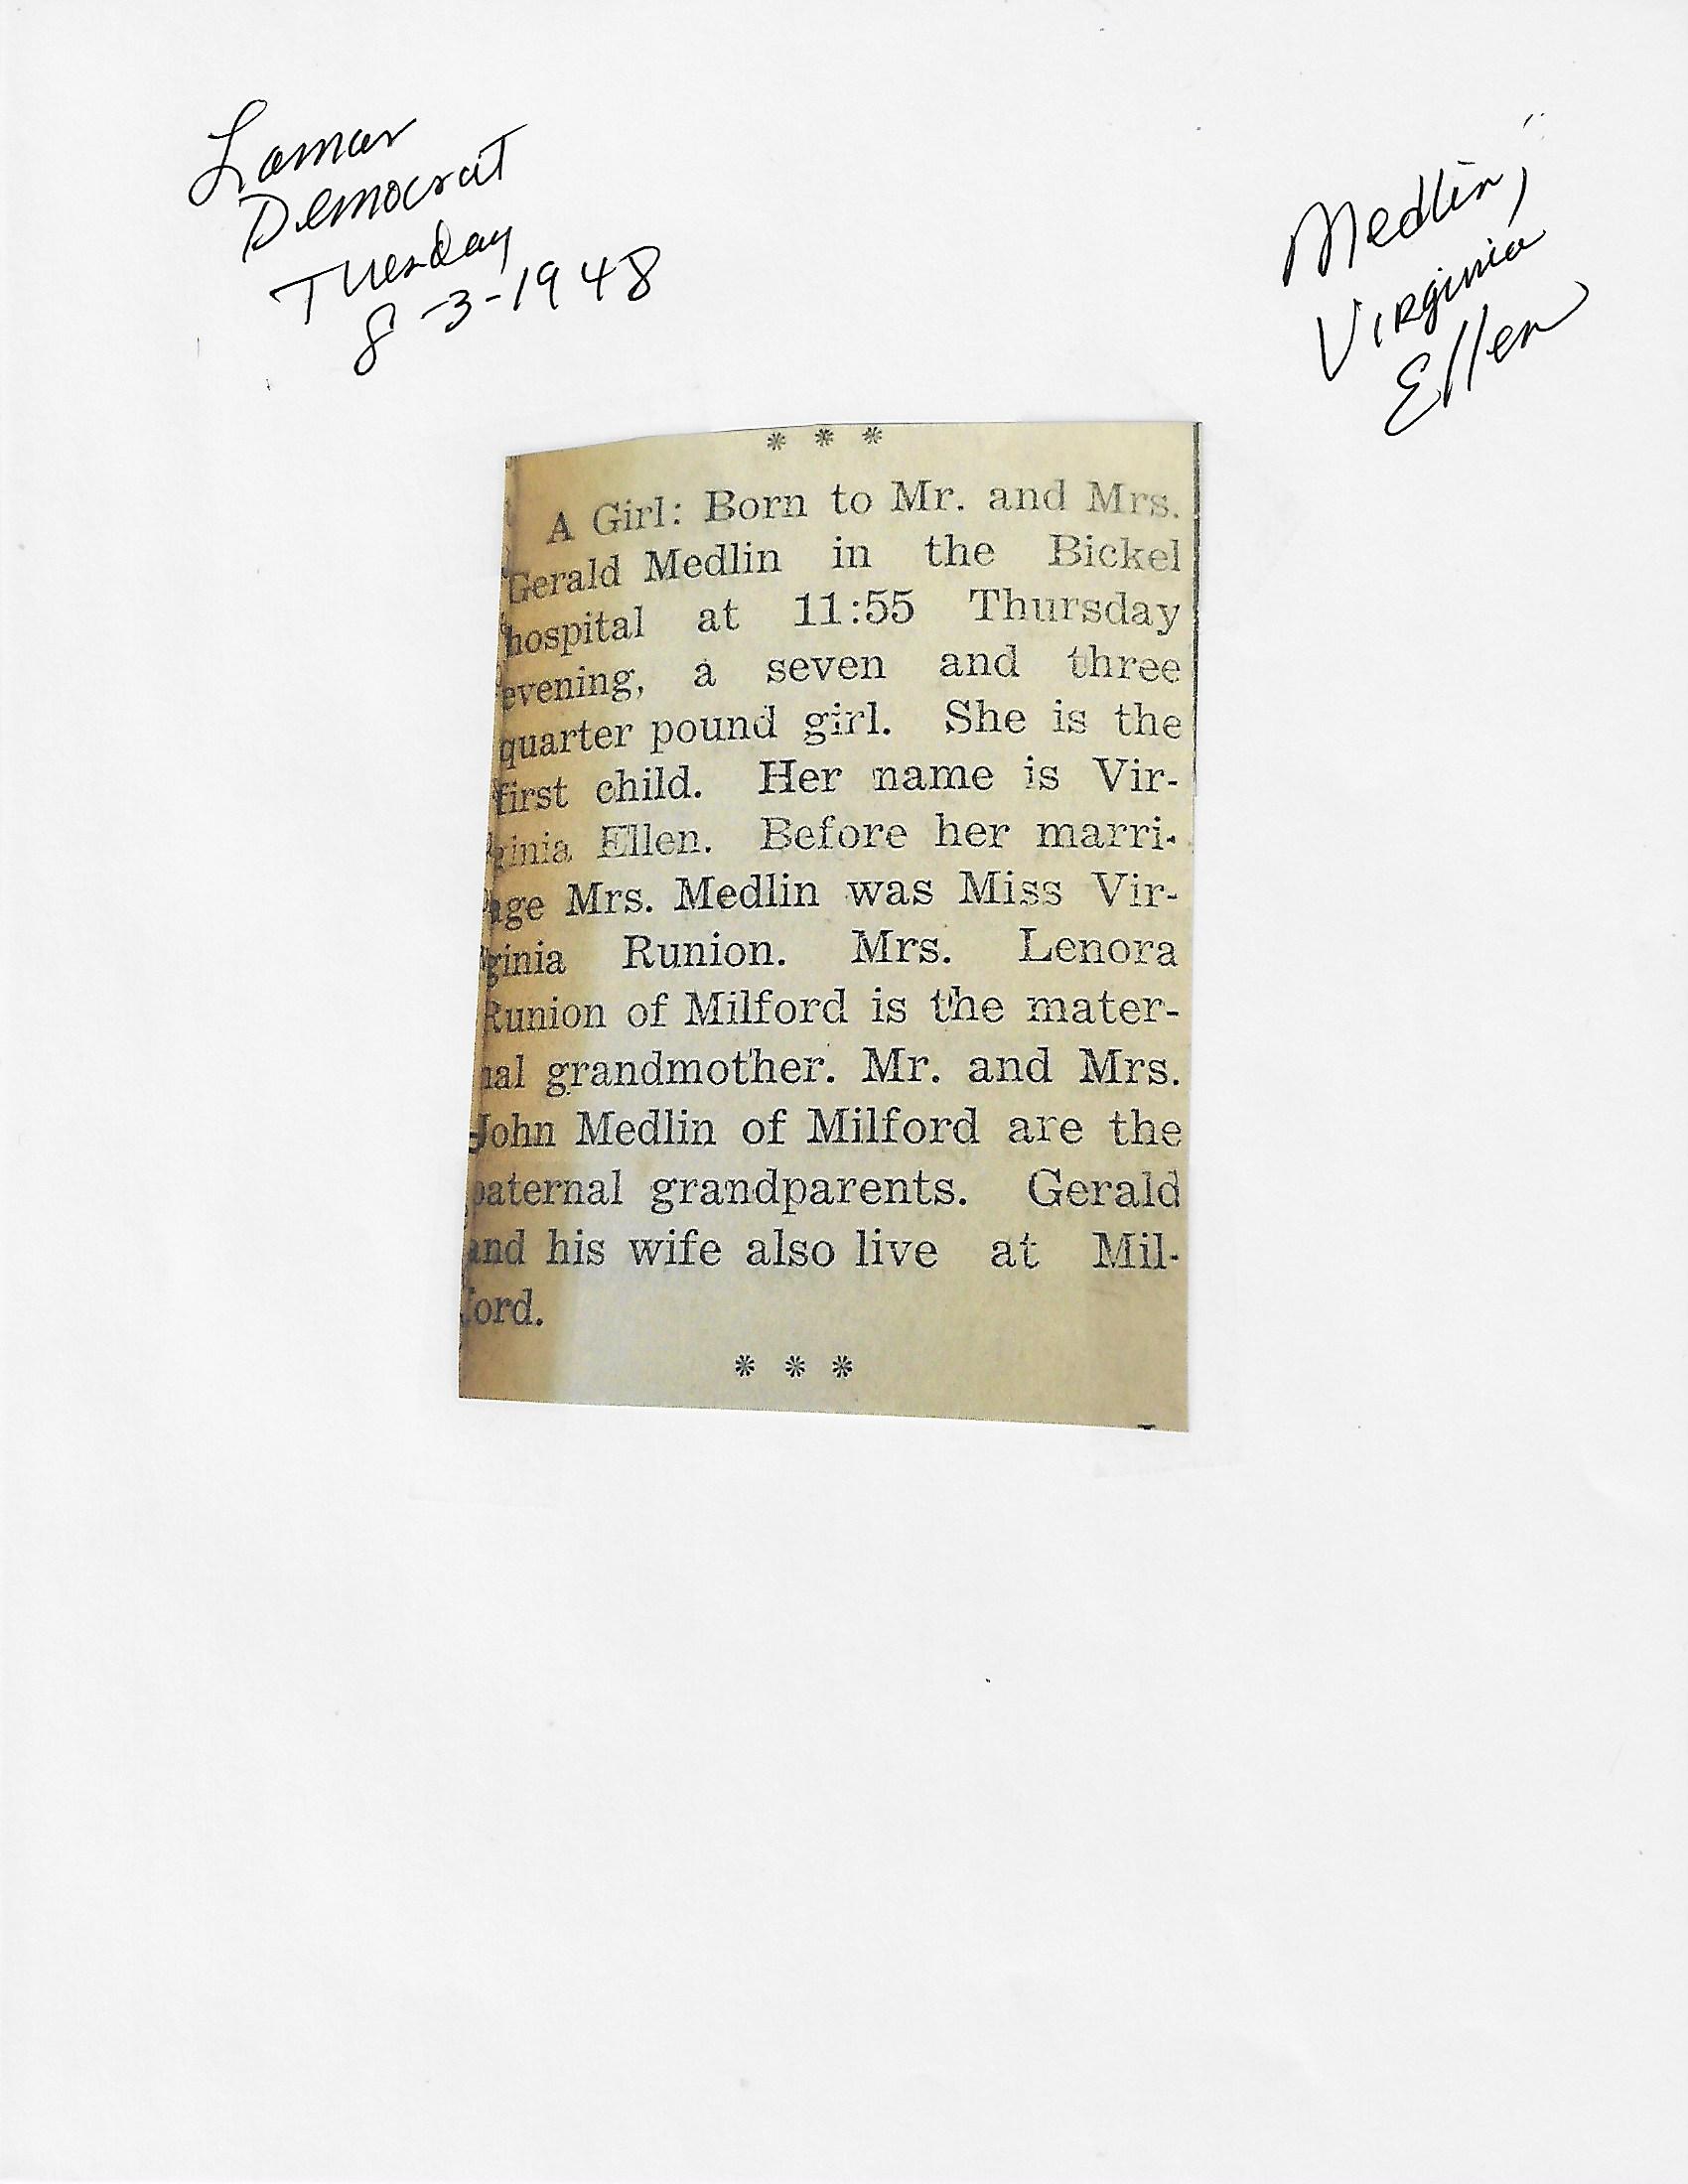 Lamar
Democrat
Tuesday
8-3-1948
Medlin,
Virginia
Ellen
* * *
A Girl: Born to Mr. and Mrs.
Gerald Medlin in the Bickel
hospital at 11:55 Thursday
evening, a seven and three
quarter pound girl. She is the
first child. Her name is Vir-
ginia Ellen. Before her marri-
age Mrs. Medlin was Miss Vir-
ginia Runion. Mrs. Lenora
Runion of Milford is the mater-
nal grandmother. Mr. and Mrs.
John Medlin of Milford are the
paternal grandparents. Gerald
and his wife also live at Mil-
ford.
* * *